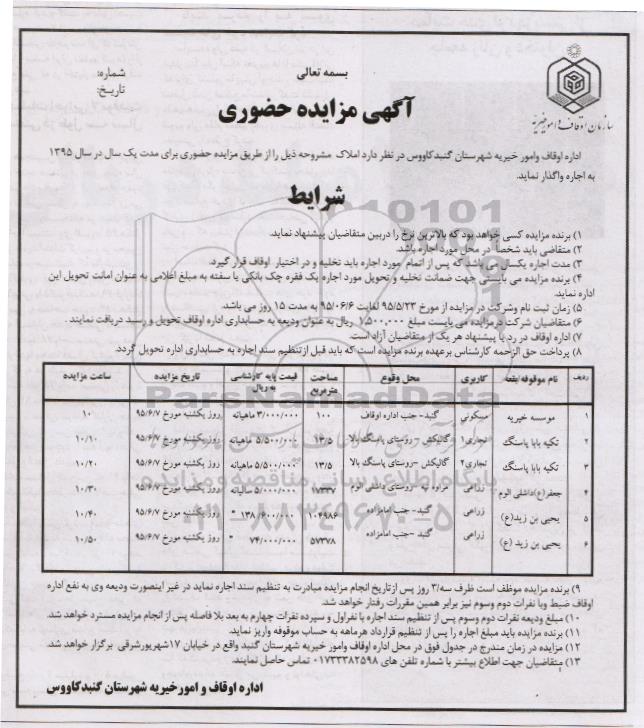 بسمه تعالی
شماره:
تاریخ:
سازمان اوقاف و امور خیریه
آگهی مزایده حضوری
اداره اوقاف وامور خیریه شهرستان گنبدکاووس در نظر دارد املاک مشروحه ذیل را از طریق مزایده حضوری برای مدت یک سال در سال ۱۳۹۵
به اجاره واگذار نماید.
شرایط
۱) برنده مزایده کسی خواهد بود که بالاترین نرخ را دربین متقاضیان پیشنهاد نماید.
۲) متقاضی باید شخصاً در محل مورد اجاره باشد.
۳) مدت اجاره یکسال می باشد که پس از اتمام مورد اجاره باید تخلیه و در اختیار اوقاف قرار گیرد.
۴) برنده مزایده می بایستی جهت ضمانت تخلیه و تحویل مورد اجاره یک فقره چک بانکی یا سفته به مبلغ اعلامی به عنوان امانت تحویل این
اداره نماید.
۵) زمان ثبت نام وشرکت در مزایده از مورخ ۹۵/۵/۲۳ لغایت ۹۵/۰۶/۶ به مدت ۱۵ روز می باشد.
۶) متقاضیان شرکت در مزایده می بایست مبلغ ۱,۵۰۰,۰۰۰ ریال به عنوان ودیعه به حسابداری اداره اوقاف تحویل و رسید دریافت نمایند.
۷) اداره اوقاف در رد یا پیشنهاد هر یک از متقاضیان آزاد است.
۸) پرداخت حق الزحمه کارشناس برعهده برنده مزایده است که باید قبل ازتنظیم سند اجاره به حسابداری اداره تحویل گردد.
ردیف نام موقوفه/بقعه کاربری محل وقوع مساحت مترمربع قیمت پایه کارشناسی به ریال تاریخ مزایده ساعت مزایده
۱ موسسه خیریه مسکونی گنبد- جنب اداره اوقاف ۱۰۰ ۳/۰۰۰/۰۰۰ ماهیانه روز یکشنبه مورخ ۹۵/۶/۷ ۱۰
۲ تکیه بابا پاسنگ تجاری۱ گالیکش -روستای پاسنگ بالا ۱۳/۵ ۵/۵۰۰/۰۰۰ ماهیانه روز یکشنبه مورخ ۹۵/۶/۷ ۱۰/۱۰
۳ تکیه بابا پاسنگ تجاری۲ گالیکش -روستای پاسنگ بالا ۱۳/۵ ۵/۵۰۰/۰۰۰ ماهیانه روز یکشنبه مورخ ۹۵/۶/۷ ۱۰/۲۰
۴ جعفر(ع)داشلی الوم زراعی مراوه تپه -روستای داشلی الوم ۱۷۳۳۷ ۵/۰۰۰/۰۰۰ سالیانه روز یکشنبه مورخ ۹۵/۶/۷ ۱۰/۳۰
۵ یحیی بن زید(ع) زراعی گنبد- جنب امامزاده ۱۰۶۹۸۶ ۱۳۸/۶۰۰/۰۰۰ " روز یکشنبه مورخ ۹۵/۶/۷ ۱۰/۴۰
۶ یحیی بن زید (ع) زراعی گنبد -جنب امامزاده ۵۷۳۷۸ ۷۴/۰۰۰/۰۰۰ " روز یکشنبه مورخ ۹۵/۶/۷ ۱۰/۵۰
ParsNamadData
پایگاه اطلاع رسانی مناقصه و مزایده
۰۲۱-۸۸۳۴۹۶۷۰-۵
۹) برنده مزایده موظف است ظرف سه/۳ روز پس ازتاریخ انجام مزایده مبادرت به تنظیم سند اجاره نماید در غیر اینصورت ودیعه وی به نفع اداره
اوقاف ضبط وبا نفرات دوم وسوم نیز برابر همین مقررات رفتار خواهد شد.
۱۰) مبلغ ودیعه نفرات دوم وسوم پس از تنظیم سند اجاره با نفراول و سپرده نفرات چهارم به بعد بلا فاصله پس از انجام مزایده مسترد خواهد شد.
۱۱) برنده مزایده باید مبلغ اجاره را پس از تنظیم قرارداد هرماهه به حساب موقوفه واریز نماید.
۱۲) مزایده در زمان مندرج در جدول فوق در محل اداره اوقاف وامور خیریه شهرستان گنبد واقع در خیابان ۱۷شهریورشرقی برگزار خواهد شد.
۱۳) متقاضیان جهت اطلاع بیشتر با شماره تلفن های ۰۱۷۳۳۳۸۲۵۹۸ تماس حاصل نمایند.
اداره اوقاف و امورخیریه شهرستان گنبدکاووس